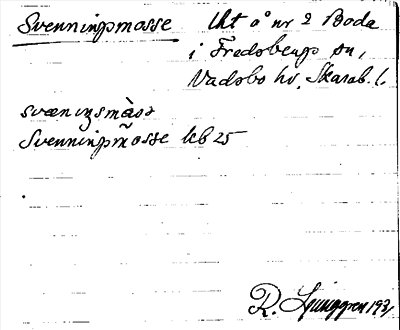 Svenningsmosse Ut å nr 2 Boda
i Fredsbergs sn,
Vadsbo hd, Skarab. l.
svæniŋsmås̀ə
Svenningsmosse kb 25
R. Ljunggren 1931